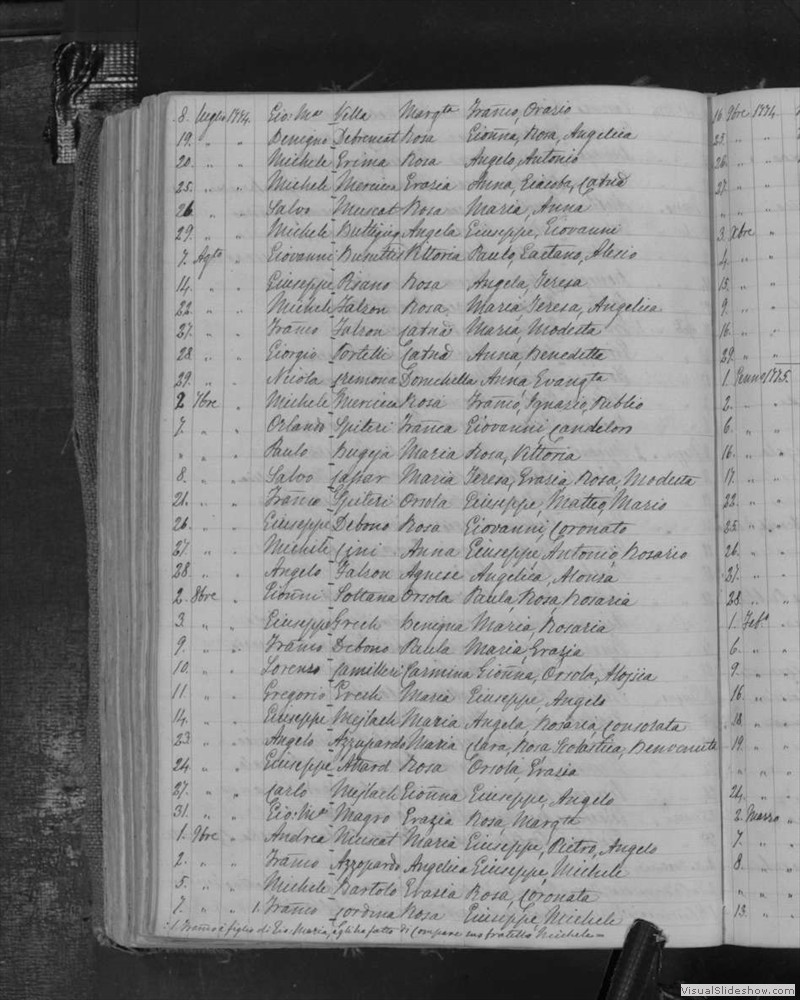 8. luglio 1774. Gio: Ma Vella Margta Franco, Orazio
19. " " Benigno Debrincat Rosa Gionna, Rosa, Angelica
20. " " Michele Grima Rosa Angelo, Antonio
25. " " Michele Mercieca Grazia Anna, Giacoba, Catna
26. " " Salvo Muscat Rosa Maria, Anna
29. " " Michele Buttigieg Angela Giuseppe, Giovanni
7. Agto " Giovanni Vittoria Paulo, Gaetano, Alesio
14. " " Giuseppe Pisano Rosa Angela, Teresa
22. " " Michele Falzon Rosa Maria, Teresa, Angelica
27. " " Franco Falzon Catna Maria, Modesta
28. " " Giorgio Portelli Catna Anna, Benedetta
29. " " Nicola Cremona Domchella Anna, Evangta
2 7bre " Michele Mercieca Rosa Franco, Ignazio, Publio
7. " " Orlando Spiteri Franca Giovanni, Candeloro
" " " Paulo Bugeja Maria Rosa, Vittoria
8. " " Salvo Caspar Maria Teresa, Grazia, Rosa, Modesta
21. " " Franco Spiteri Orsola Giuseppe, Matteo, Mario
26. " " Giuseppe Debono Rosa Giovanni, Coronato
27. " " Michele Cini Anna Giuseppe, Antonio, Rosario
28. " " Angelo Falzon Agnese Angelica, Alonza
2. 8bre " Gionni Soltana Orsola Paula, Rosa, Rosaria
3. " " Giuseppe Grech Benigna Maria, Rosaria
9. " " Franco Debono Paula Maria, Grazia
10. " " Lorenzo Camilleri Carmina Gionna, Orsola, Alojsia
11. " " Gregorio Grech Maria Giuseppe, Angelo
14. " " Giuseppe Mejlach Maria Angela, Rosaria, Consolata
23 " " Angelo Azzupardo Maria Clara, Rosa Scolastica, Benvenuta
24. " " Giuseppe Attard Rosa Orsola, Grazia
27. " " Carlo Mejlach Gionna Giuseppe, Angelo
31. " " Gio: Ma Magro Grazia Rosa, Margta
1. 9bre " Andrea Muscat Maria Giuseppe, Pietro, Angelo
2. " " Franco Azzopardo Angelica Giuseppe, Michele
5. " " Michele Bartolo Grazia Rosa, Coronata
7. " " 1. Franco Cordina Rosa Giuseppe Michele
:1. Franco è figlio di Gio: Maria, egli ha fatto di Compare suo fratello Michele –
16 9bre 1774.
25. " "
26. " "
27. " "
" " "
3. Xbre "
4. " "
15. " "
9. " "
16. " "
29. " "
1. Genno 1775.
2. " "
6. " "
16. " "
17. " "
22. " "
25. " "
26. " "
27. " "
28. " "
1. Feb.o "
6. " "
9. " "
16. " "
18. " "
19. " "
" " "
24. " "
2. Marzo "
7. " "
8. " "
" " "
13. " "
VisualSlideshow.com